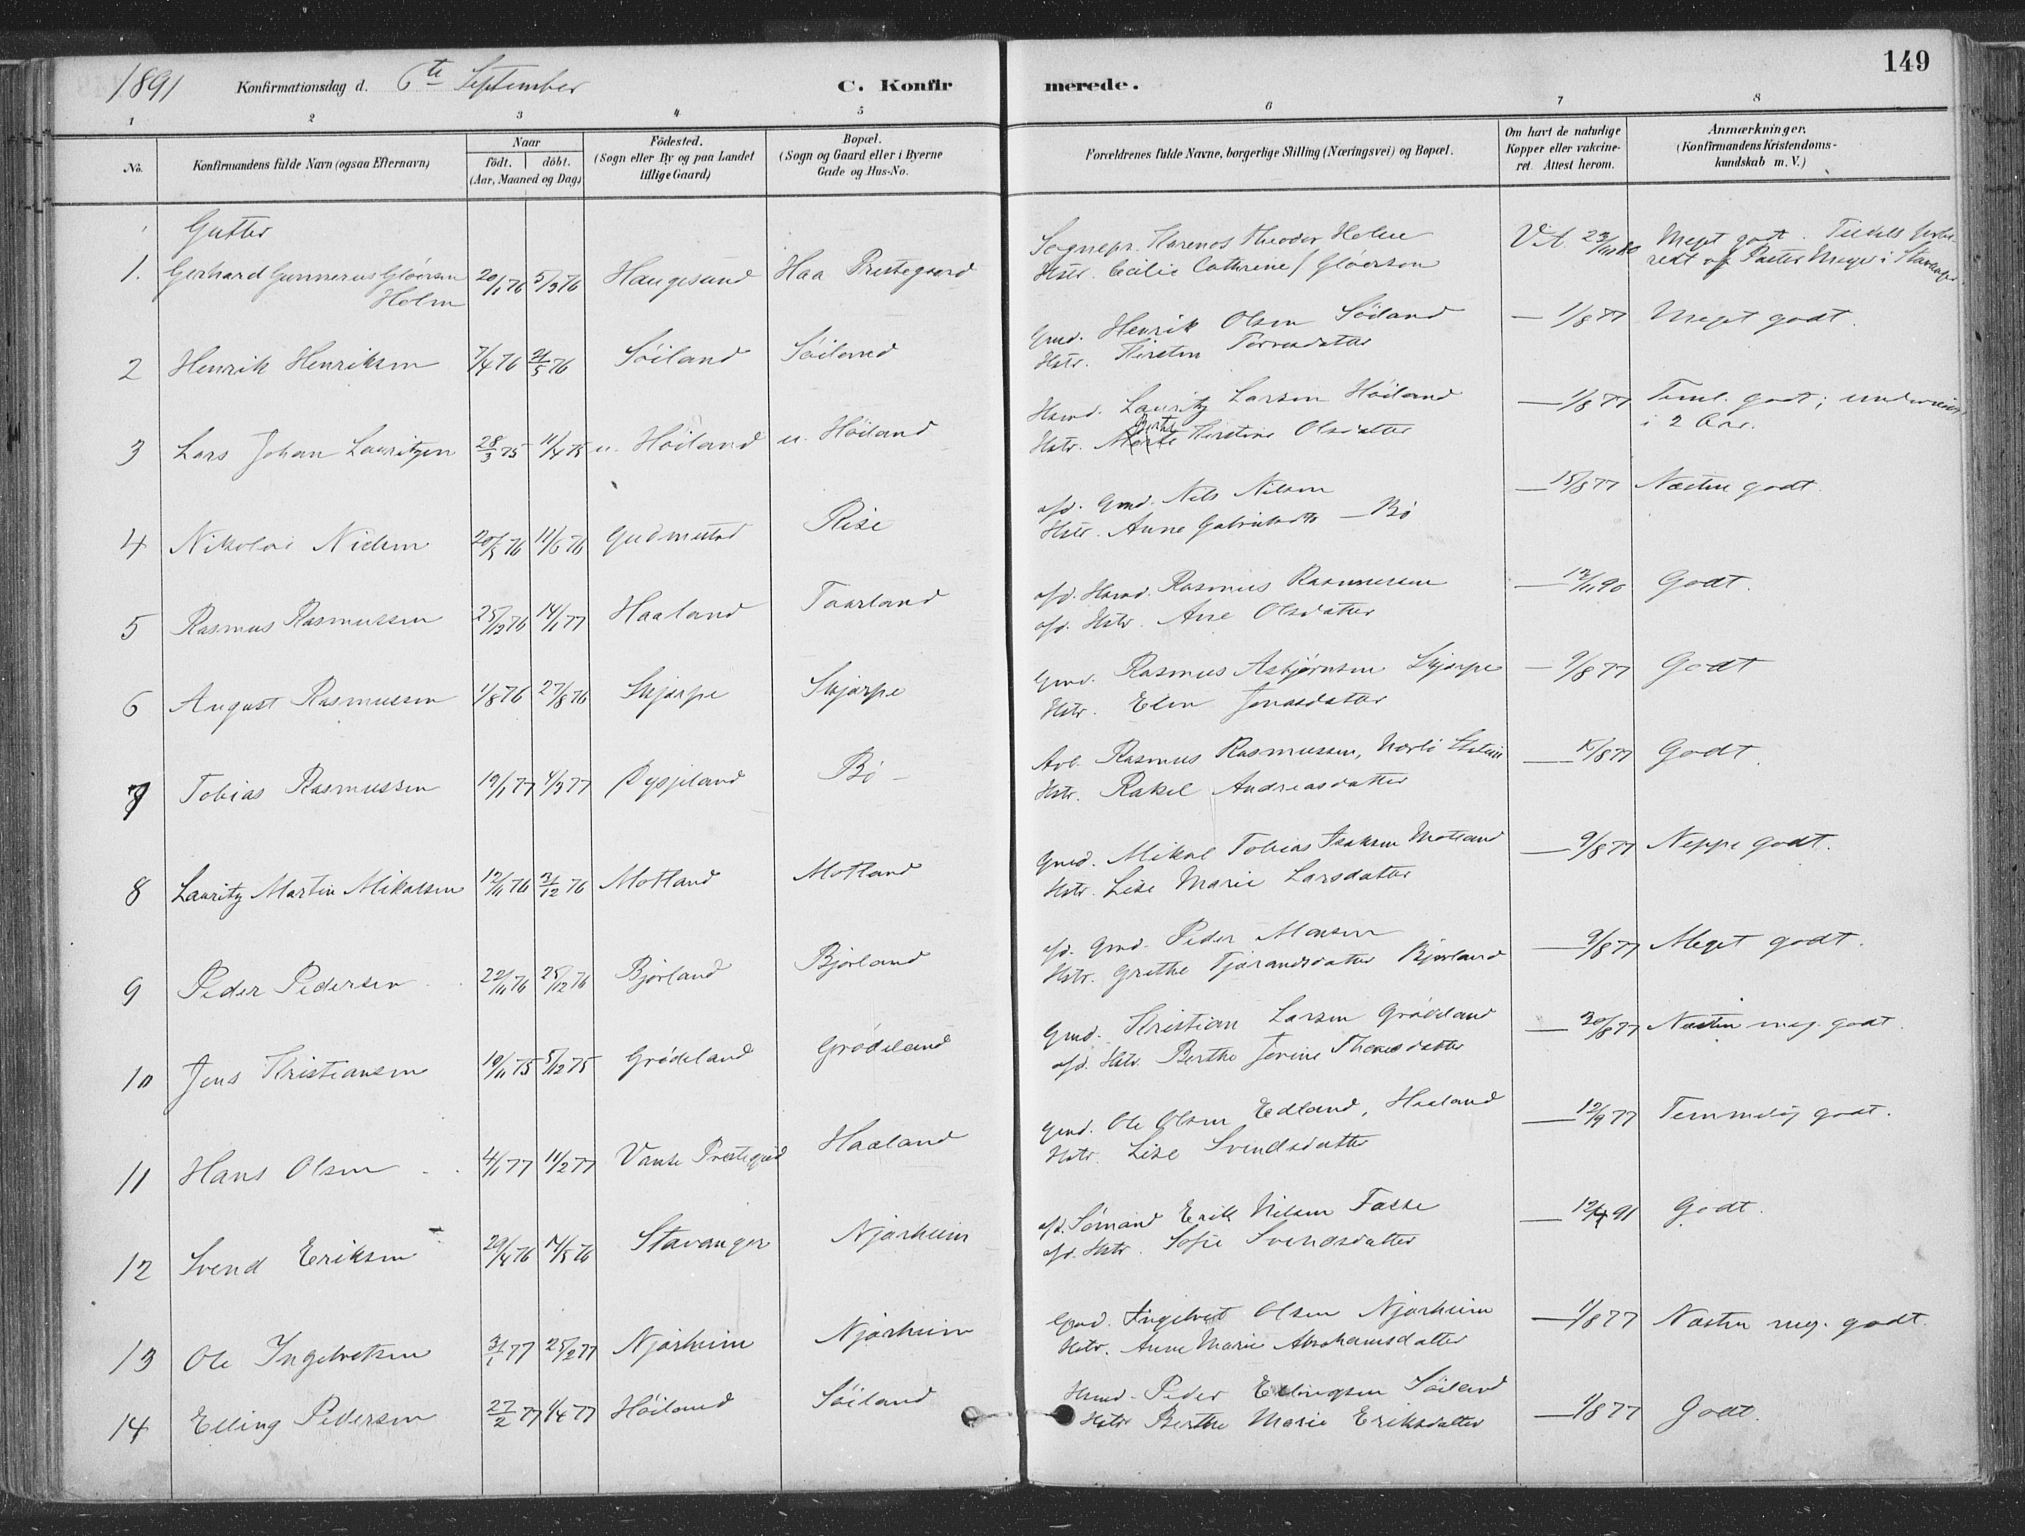 1891 Konfirmationsdag d. 6te September C. Konfirmerede. 149
1 2 3 4 5 6 7 8
No. Konfirmandens fulde Navn (ogsaa Efternavn) Naar født. døbt. (Aar, Maaned og Dag) Fødested. (Sogn eller By og paa Landet tillige Gaard) Bopæl. (Sogn og Gaard eller i Byerne Gade og Hus-No.) Forældrenes fulde Navne, borgerlige Stilling (Næringsvei) og Bopæl. Om havt de naturlige Kopper eller vakcineret. Attest herom. Anmærkninger. (Konfirmandens Kristendomskundskab m. V.)
Gutter
1. Gerhard Gunnerus Gløersen Holm 20/1 76 5/3 76 Haugesund Haa Prestegaard Sognepr. Theodor Holm
Hstr. Cecilie Cathrine f. Gløersen Meget godt. Tildels
2 Henrik Henriksen 7/4 76 21/5 76 Söiland Söiland Gmd. Henrik Olsen Söiland
Hstr. Kirsten Torresdatter — 1/8 77 Meget godt.
3 Lars Johan Lauritzen 28/3 75 11/4 75 u. Höiland u. Höiland Hsmd. Lauritz Larsen Höiland
Hstr. Berte Kirstine Olsdatter — 1/8 77 Teml. godt; i 2 Aar.
4 Nikolai Nilsen 11/6 76 Rise afd. Gmd. Nils Nilsen
Hstr. Anne — Bö — 15/8 77 Næsten godt
5 Rasmus Rasmussen 25/12 76 14/1 77 Haaland Taarland afd. Hsmd. Rasmus Rasmussen
afd. Hstr. Ane Olsdatter — 12/11 90 Godt.
6 August Rasmussen 1/8 76 27/8 76 Skjærpe Skjærpe Gmd. Rasmus Asbjørnsen Skjærpe
Hstr. Elen Jonasdatter — 9/8 77 Godt
7 Tobias Rasmussen 19/1 77 4/3 77 Rysjeland Bö Arb. Rasmus Rasmussen,
Hstr. Rakel Andreasdatter — 15/8 77 Godt.
8 Lauritz Martin Mikalsen 12/11 76 31/12 76 Motland Motland Gmd. Mikal Tobias Isaksen Motland
Hstr. Lise Marie Larsdatter — 9/8 77 Neppe godt.
9 Peder Pedersen 22/11 76 25/12 76 Bjørland Bjørland afd. Gmd. Peder Monsen
Hstr. Grethe Tjærandsdatter Bjørland — 9/8 77 Meget godt.
10 Jens Kristiansen 10/11 75 5/12 75 Grødeland Grødeland Gmd. Kristian Larsen Grødeland
afd. Hstr. Berthe Jorine — 30/8 77 Næsten meg. godt.
11 Hans Olsen 4/1 77 11/2 77 Vanse Prestegrd Haaland Gmd. Ole Olsen Edland, Haaland
Hstr. Lise Svendsdatter — 12/9 77 Temmelig godt.
12 Svend Eriksen 29/4 76 Stavanger Njærheim afd. Sømand Erik Nilsen
afd. Hstr. Sofie Svendsdatter 91 Godt.
13 Ole Ingebretsen 31/1 77 25/2 77 Njærheim Njærheim Gmd. Ingebret Olsen Njærheim
Hstr. Anne Marie Abrahamsdatter — 1/8 77 Næsten meg. godt.
14 Elling Pedersen 27/2 77 1/4 77 Höiland Söiland Hsmd. Peder Ellingsen Söiland
Hstr Berthe Marie Eriksdatter — 1/8 77 Godt.